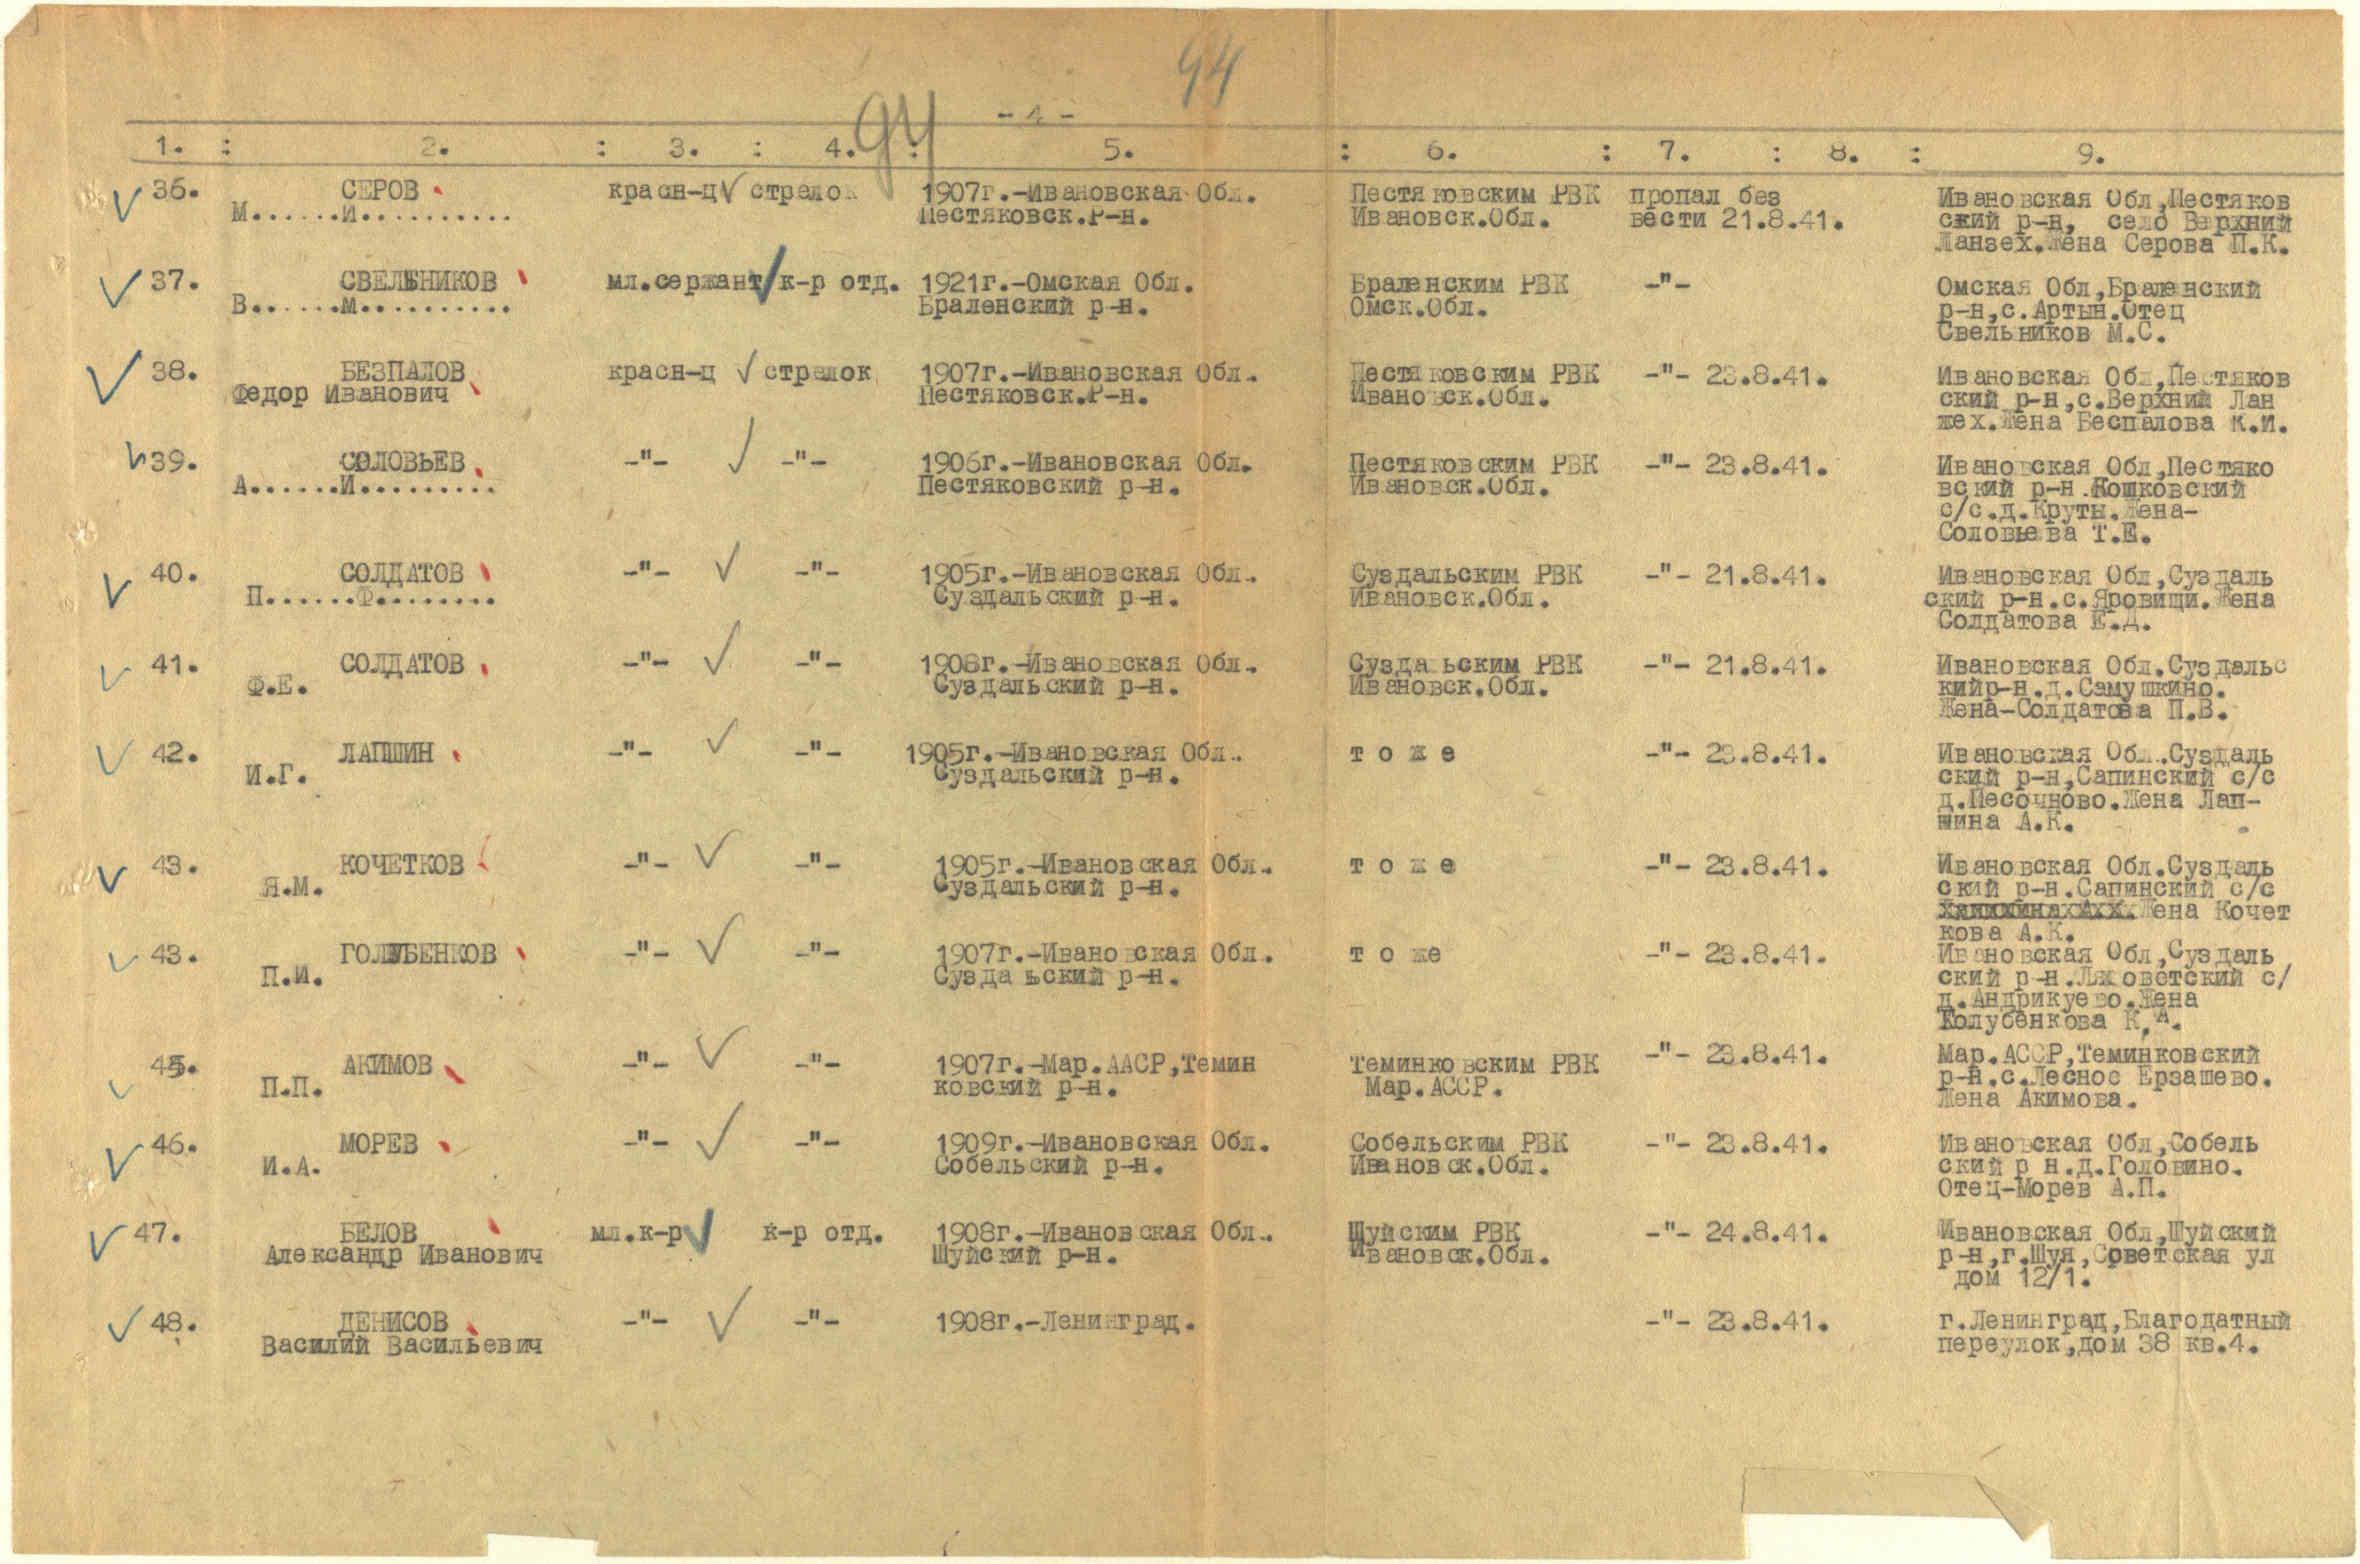 94
- 4 -
94
1. : 2. : 3. : 4. : 5. : 6. : 7. : 8. : 9.
36. СЕРОВ красн-ц стрелок 1907г.-Ивановская Обл. Пестяковским РВК пропал без Ивановская Обл,Пестяков
М.......И........... Пестяковск.Р-н. Ивановск.Обл. вести 21.8.41. ский р-н, село Верхний
Ланзех.Жена Серова П.К.
37. СВЕЛЬНИКОВ мл.сержант к-р отд. 1921г.-Омская Обл. Браленским РВК -"- Омская Обл,Браленский
В.......М........... Браленский р-н. Омск.Обл. р-н,с.Артын.Отец
Свельников М.С.
38. БЕЗПАЛОВ красн-ц стрелок 1907г.-Ивановская Обл. Пестяковским РВК -"- 23.8.41. Ивановская Обл,Пестяков
Федор Иванович Пестяковск.Р-н. Ивановск.Обл. ский р-н,с.Верхний Лан
жех.Жена Беспалова К.И.
39. СОЛОВЬЕВ -"- -"- 1906г.-Ивановская Обл. Пестяковским РВК -"- 23.8.41. Ивановская Обл,Пестяко
А.......И.......... Пестяковский р-н. Ивановск.Обл. вский р-н.Кошковский
с/с.д.Круты.Жена-
Соловьева Т.Е.
40. СОЛДАТОВ -"- -"- 1905г.-Ивановская Обл. Суздальским РВК -"- 21.8.41. Ивановская Обл,Суздаль
П.......Ф......... Суздальский р-н. Ивановск.Обл. ский р-н.с.Яровищи.Жена
Солдатова Е.Д.
41. СОЛДАТОВ -"- -"- 1908г.-Ивановская Обл. Сузда ьским РВК -"- 21.8.41. Ивановская Обл.Суздальс
Ф.Е. Суздальский р-н. Ивановск.Обл. кийр-н.д.Самушкино.
Жена-Солдатова П.В.
42. ЛАПШИН -"- -"- 1905г.-Ивановская Обл. т о ж е -"- 23.8.41. Ивановская Обл.Суздаль
И.Г. Суздальский р-н. ский р-н,Сапинский с/с
д.Песочново.Жена Лап-
шина А.К.
43. КОЧЕТКОВ -"- -"- 1905г.-Ивановская Обл. т о ж е -"- 23.8.41. Ивановская Обл.Суздаль
Я.М. Суздальский р-н. ский р-н.Сапинский с/с
Жена Кочет
кова А.К.
43. ГОЛУБЕНКОВ -"- -"- 1907г.-Ивановская Обл. т о же -"- 23.8.41. Ивановская Обл,Суздаль
П.И. Сузда ьский р-н. ский р-н. с/
д.Андрикуево.Жена
Голубенкова К.А.
45. АКИМОВ -"- -"- 1907г.-Мар.ААСР,Темин Теминковским РВК -"- 23.8.41. Мар.АССР,Теминковский
П.П. ковский р-н. Мар.АССР. р-н.с.Лесное Ерзашево.
Жена Акимова.
46. МОРЕВ -"- -"- 1909г.-Ивановская Обл. Собельским РВК -"- 23.8.41. Ивановская Обл,Собель
И.А. Собельский р-н. Ивановск.Обл. ский р н.д.Головино.
Отец-Морев А.П.
47. БЕЛОВ мл.к-р к-р отд. 1908г.-Ивановская Обл. Шуйским РВК -"- 24.8.41. Ивановская Обл,Шуйский
Александр Иванович Шуйский р-н. Ивановск.Обл. р-н,г.Шуя,Советская ул
дом 12/1.
48. ДЕНИСОВ -"- -"- 1908г.-Ленинград. -"- 23.8.41. г.Ленинград,Благодатный
Василий Васильевич переулок,дом 38 кв.4.